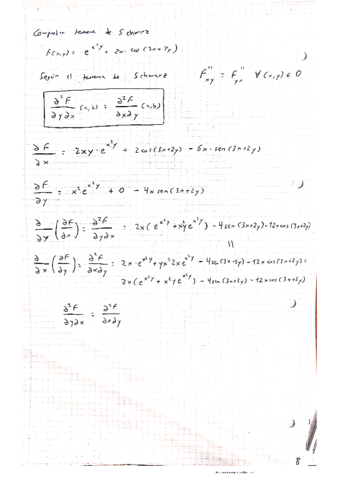 Comprobar teorema de Schwarz
F(x,y) = e^{x²y} + 2x · cos (3x+2y)
Según el teorema de Schwarz F''xy = F''yx ∀ (x,y) ∈ D
∂²F/∂y∂x (a,b) = ∂²F/∂x∂y (a,b)
∂F/∂x = 2xy · e^{x²y} + 2cos(3x+2y) - 6x · sen(3x+2y)
∂F/∂y = x² · e^{x²y} + 0 - 4x sen(3x+2y)
∂/∂y (∂F/∂x) = ∂²F/∂y∂x = 2x (e^{x²y} + x²y e^{x²y}) - 4sen(3x+2y) - 12x cos(3x+2y)
||
∂/∂x (∂F/∂y) = ∂²F/∂x∂y = 2x · e^{x²y} + yx² 2x e^{x²y} - 4sen(3x+2y) - 12x cos(3x+2y) =
2x (e^{x²y} + x²y e^{x²y}) - 4sen(3x+2y) - 12x cos(3x+2y)
∂²F/∂y∂x = ∂²F/∂x∂y
8